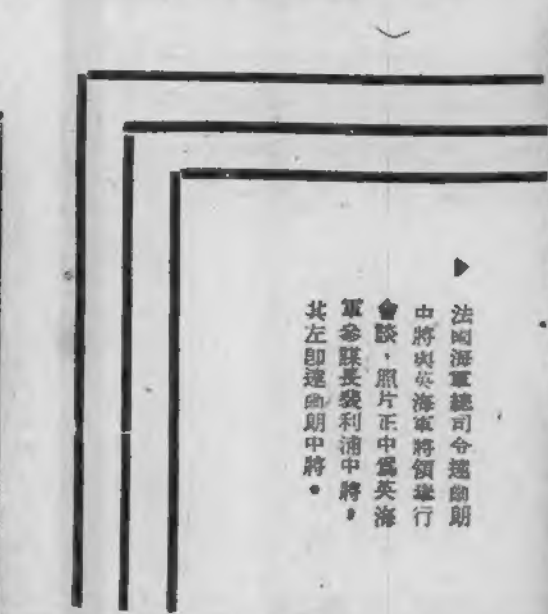 ▶
法國海軍總司令達爾朗
中將與英海軍將領舉行
會談,照片正中爲英海
軍參謀長裴利浦中將,
其左卽達爾朗中將。